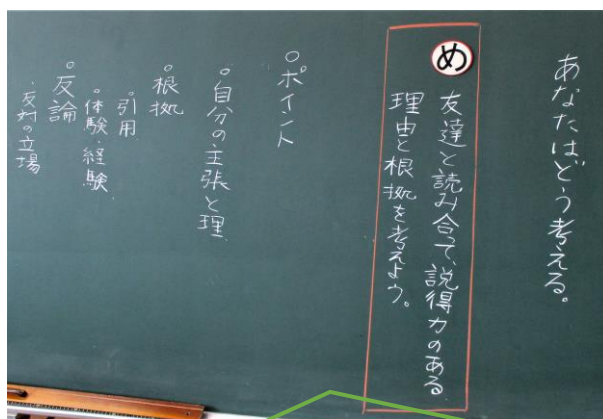 あなたは、どう考える。
め
友達と読み合って、説得力のある
理由と根拠を考えよう。
○ポイント
○自分の主張と理
○根拠
・引用
・体験・経験
○反論
・反対の立場